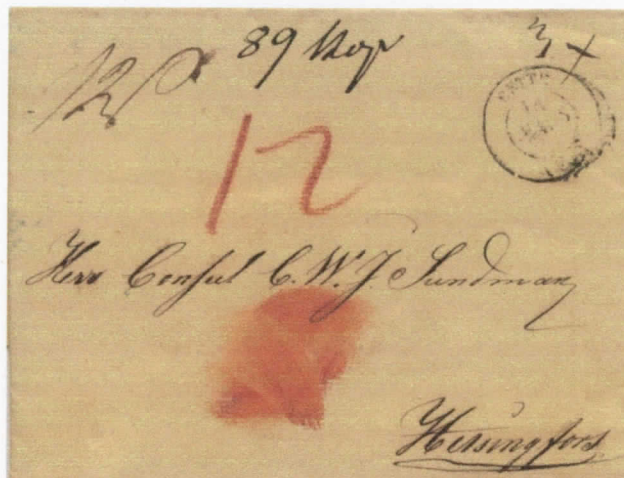 89 Kop
3
CETTE
12
Herr Consul C. W. J. Sundman
Helsingfors